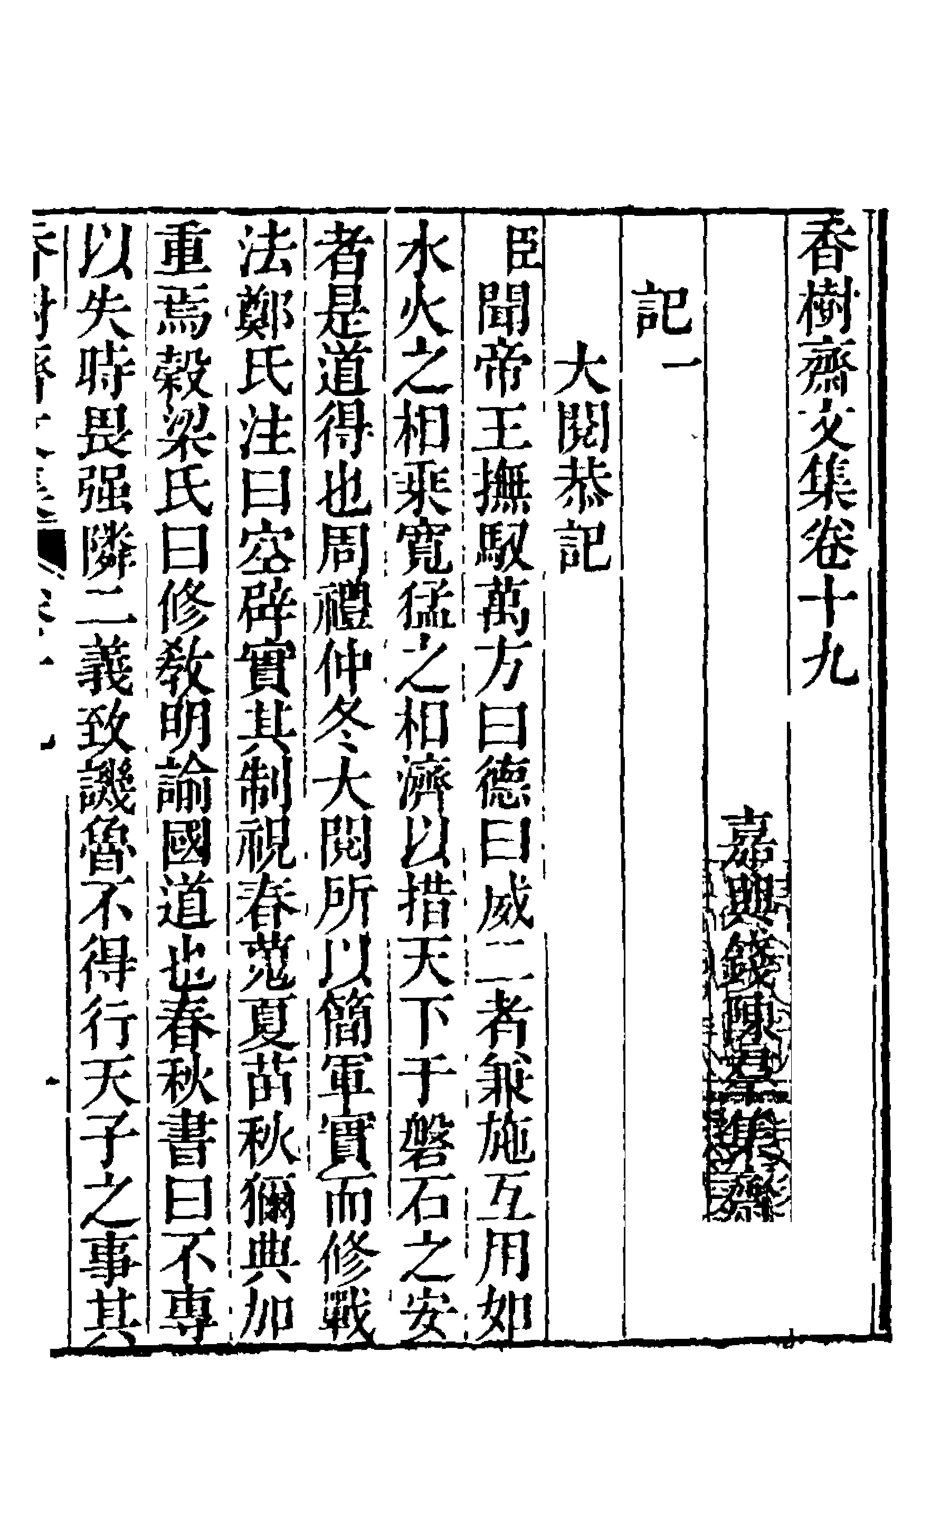 香樹齋文集卷十九
嘉興錢陳羣集齋
記一
大閱恭記
臣聞帝王撫馭萬方曰德曰威二者兼施互用如
水火之相乘寬猛之相濟以措天下于磐石之安
者是道得也周禮仲冬大閱所以簡軍實而修戰
法鄭氏注曰空辟實其制視春蒐夏苗秋獮典加
重焉穀梁氏曰修教明諭國道也春秋書曰不專
以失時畏强隣二義致譏魯不得行天子之事其
香樹齋文集 卷十九